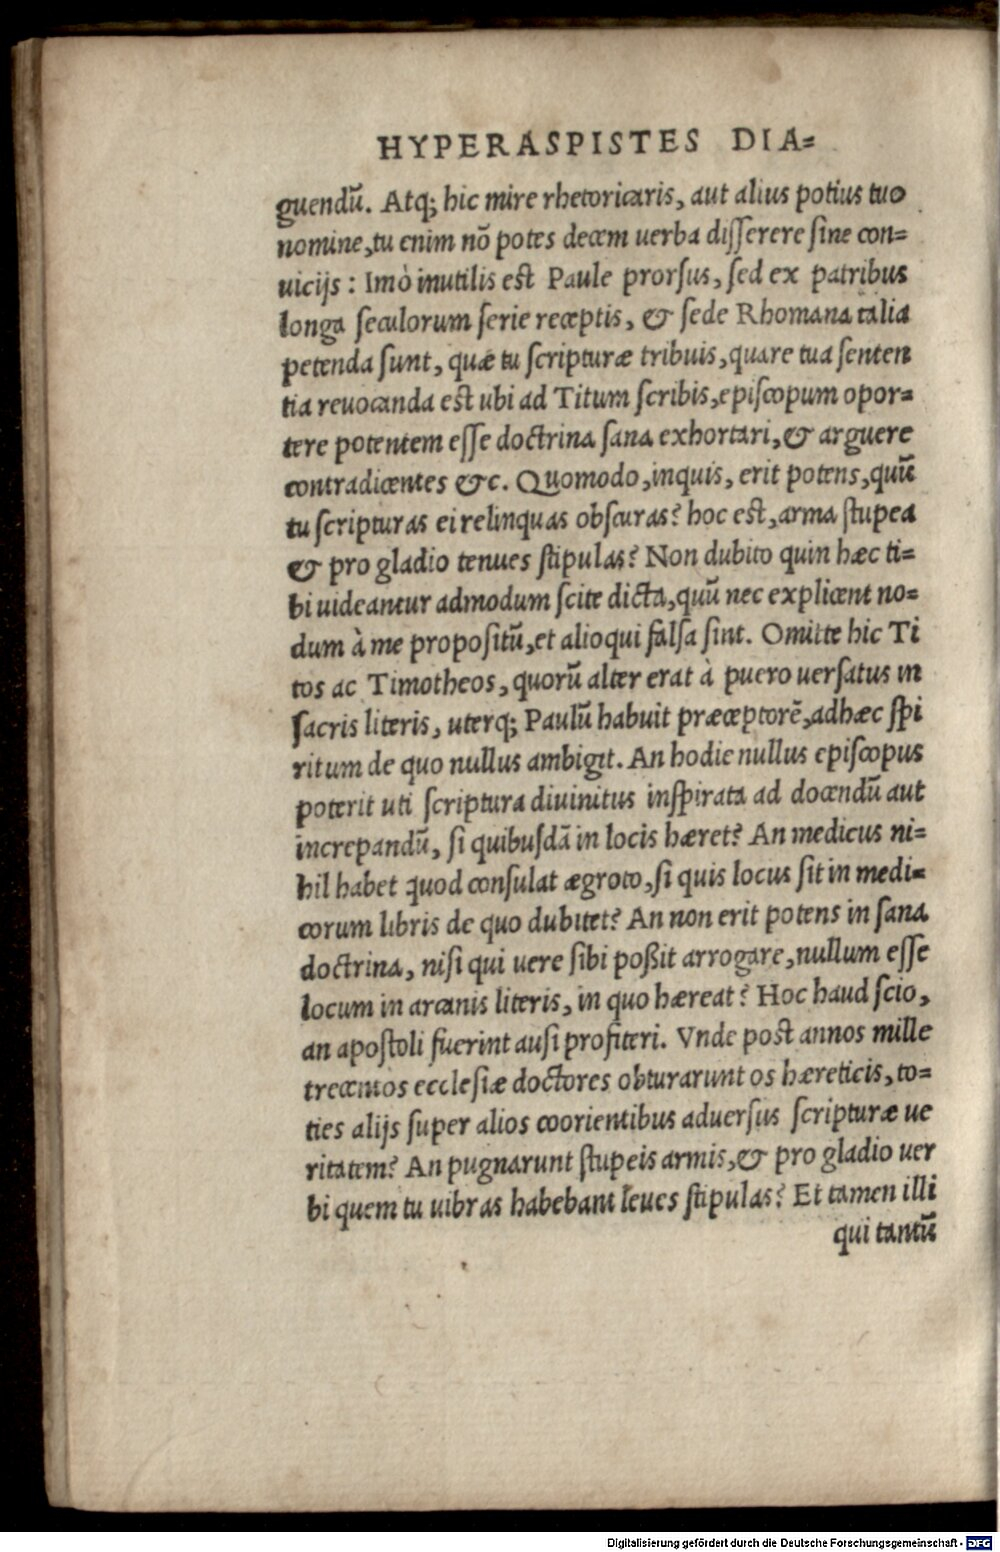 HYPERASPISTES DIA=
guendū. Atq; hic mire rhetoricaris, aut alius potius tuo
nomine, tu enim nō potes decem uerba disserere sine con=
uicijs: Imò inutilis est Paule prorsus, sed ex patribus
longa seculorum serie receptis, & sede Rhomana talia
petenda sunt, quæ tu scripturæ tribuis, quare tua senten
tia reuocanda est ubi ad Titum scribis, episcopum opor=
tere potentem esse doctrina sana exhortari, & arguere
contradicentes &c. Quomodo, inquis, erit potens, quū
tu scripturas ei relinquas obscuras? hoc est, arma stupea
& pro gladio tenues stipulas? Non dubito quin hæc ti=
bi uideantur admodum scite dicta, quū nec explicent no=
dum à me propositū, et alioqui falsa sint. Omitte hic Ti
tos ac Timotheos, quorū alter erat à puero uersatus in
sacris literis, uterq; Paulū habuit præceptorē, adhæc spi
ritum de quo nullus ambigit. An hodie nullus episcopus
poterit uti scriptura diuinitus inspirata ad docendū aut
increpandū, si quibusdā in locis hæret? An medicus ni=
hil habet quod consulat ægroto, si quis locus sit in medi=
corum libris de quo dubitet? An non erit potens in sana
doctrina, nisi qui uere sibi poßit arrogare, nullum esse
locum in arcanis literis, in quo hæreat? Hoc haud scio,
an apostoli fuerint ausi profiteri. Vnde post annos mille
trecentos ecclesiæ doctores obturarunt os hæreticis, to=
ties alijs super alios coorientibus aduersus scripturæ ue
ritatem? An pugnarunt stupeis armis, & pro gladio uer
bi quem tu uibras habebant leues stipulas? Et tamen illi
qui tantū
Digitalisierung gefördert durch die Deutsche Forschungsgemeinschaft - DFG